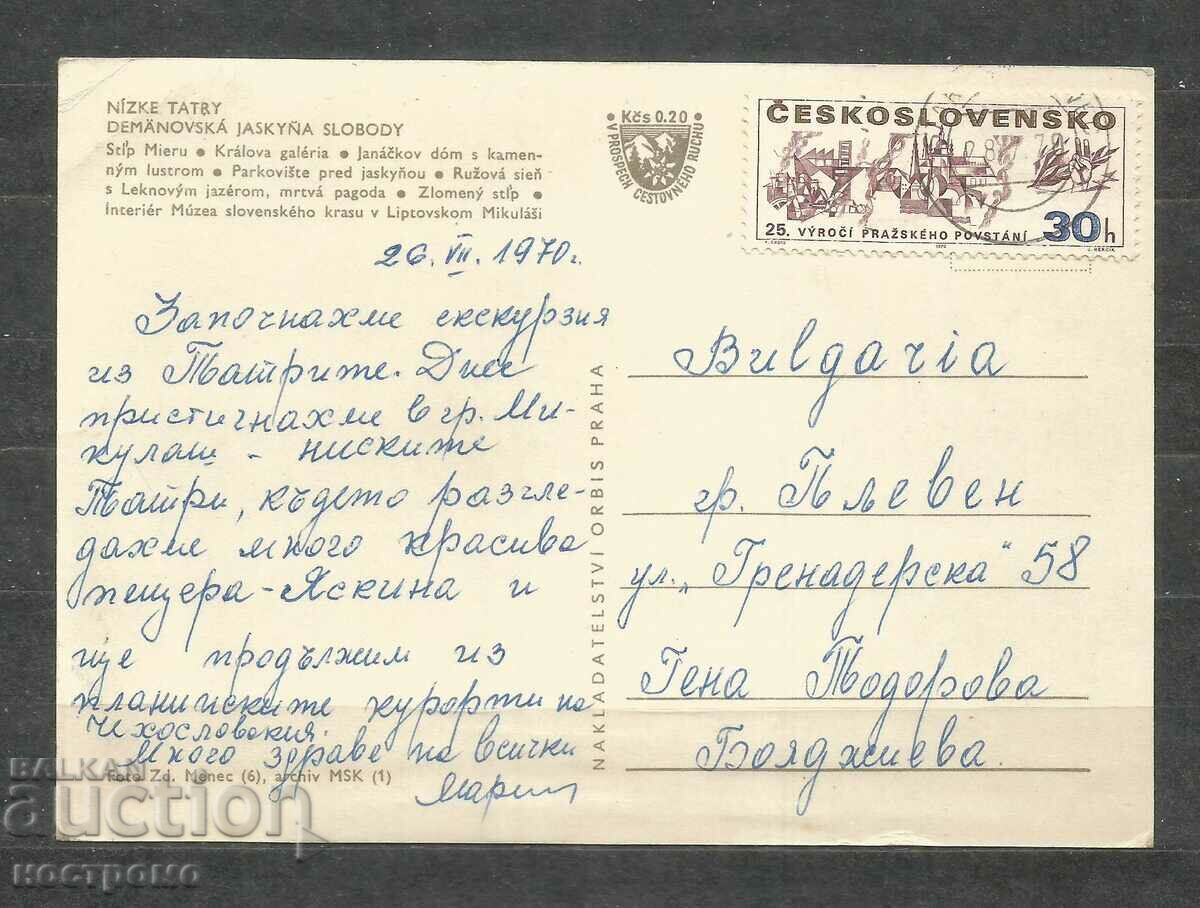 NÍZKE TATRY
DEMÄNOVSKÁ JASKYŇA SLOBODY
Stĺp Mieru • Kráľova galéria • Janáčkov dóm s kamen-
ným lustrom • Parkovište pred jaskyňou • Ružová sieň
s Leknovým jazérom, mrtvá pagoda • Zlomený stĺp •
Interiér Múzea slovenského krasu v Liptovskom Mikuláši
• Kčs 0.20 •
V PROSPĚCH CESTOVNÉHO RUCHU
ČESKOSLOVENSKO
25. VÝROČÍ PRAŽSKÉHO POVSTÁNÍ 30h
1970
26. VII. 1970 г.
Започнахме екскурзия
из Татрите. Днес
пристигнахме в гр. Ми-
кулаш - ниските
Татри, където разгле-
дахме много красива
пещера - Яскина и
ще продължим из
планинските курорти на
Чехословакия.
Много здраве на всички
NAKLADATELSTVÍ ORBIS PRAHA
Bulgaria
гр. Плевен
ул. „Гренадерска" 58
Гена Тодорова
Бояджиева.
Foto Zd. Menec (6), archiv MSK (1)
BALKAN
auction
костромо